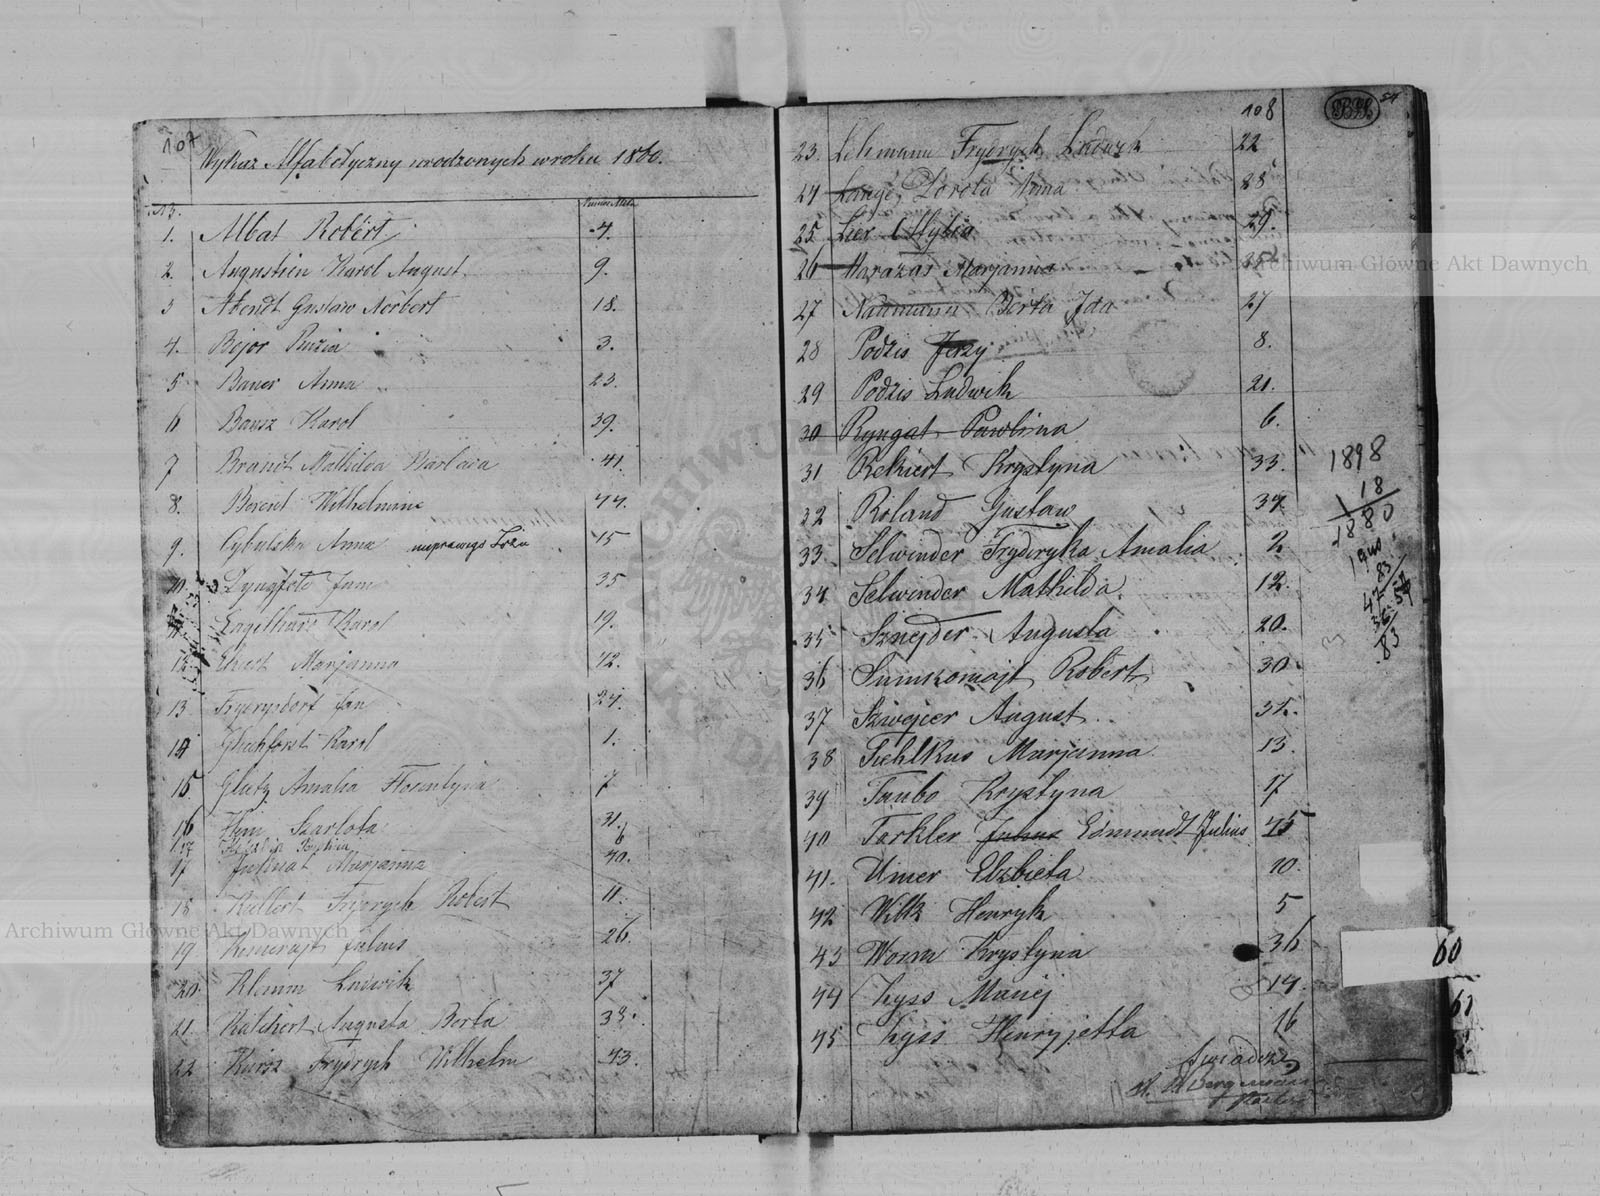 107
Wykaz Alfabetyczny urodzonych w roku 1860.
Numer Aktu
1. Albat Robert 4.
2. Augustien Karol August 9.
3 Abendt Gustaw Norbert 18.
4. Bejer Luizia 3.
5 Bauer Anna 23.
6 Bausz Karol 39.
7 Brandt Mathilda 41.
8. Berent Wilhelmine 44.
9. Cybulska Anna nieprawego Łoża 15
10. Dyngfeld Jan 35
Engelhard Karol 19.
12. Ekert Marjanna 42.
13 Frydrysdorf Jan 24.
14 Karol 1.
15. Glutz Amalia Florentyna 7
16 Hein Szarlota 31.
17 6
17 Marjanna 40.
18 Kellert Frydrych Robert 11.
19 Julius 26.
20 Klemm Ludwik 37
21. Katchert Augusta Berta 38.
22 Kursz Frydrych Wilhelm 43.
108
54
23. Lehmann Frydrych Ludwik 22
24 Lange, Dorota Anna 28
25 Lier Ottylia 29.
26 Marazas Marjanna 25
27 Naumann Berta Ida 27
28 Podzis Jerzy 8.
29 Podzis Ludwik 21.
30 Ryngat Pawlina 6.
31 Rekiert Krystyna 33.
32 Roland Gustaw 34
33. Selwinder Fryderyka Amalia 2
34 Selwinder Mathilda 12.
35 Sznejder Augusta 20.
36 Robert 30
37 Szwejcer August 32.
38 Tiehlkus Marjanna 13.
39 Taubo Krystyna 17
40 Tarkler Edmundt Julius 45
41. Umer Elzbieta 10.
42 Wilk Henryk 5
43 Worm Krystyna 36
44 Zyss Maciej 14.
45 Zyss Henryjetta 16
Swiadczę
1898
18
1880
83
47
36
83
60
61
Archiwum Główne Akt Dawnych
Archiwum Główne Akt Dawnych